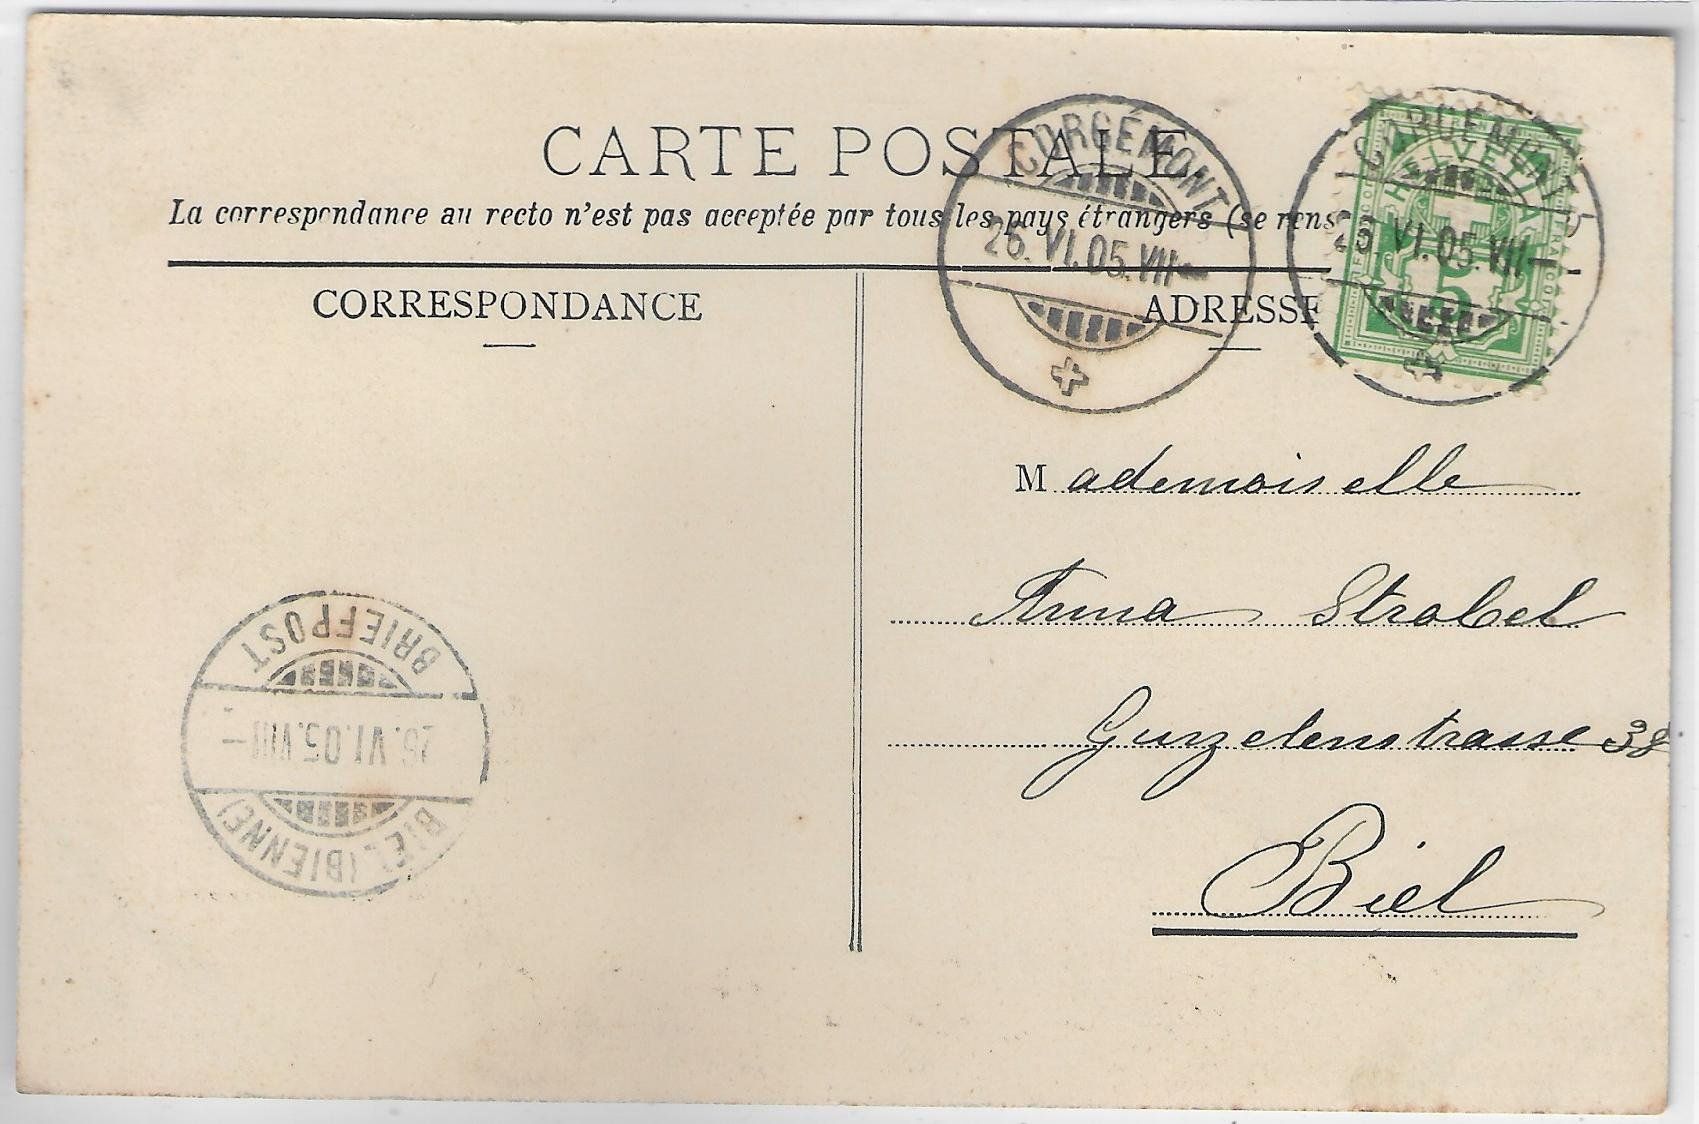 CARTE POSTALE
La correspondance au recto n'est pas acceptée par tous les pays étrangers (se rens
CORRESPONDANCE
ADRESSE
CORGÉMONT
26.VI.05.VII–
CORGÉMONT
26.VI.05.VII–
HELVETIA
5
Mademoiselle
Anna Strobel
Gurzelenstrasse 38
Biel
BRIEFPOST
26.VI.05.VIII–
BIEL (BIENNE)